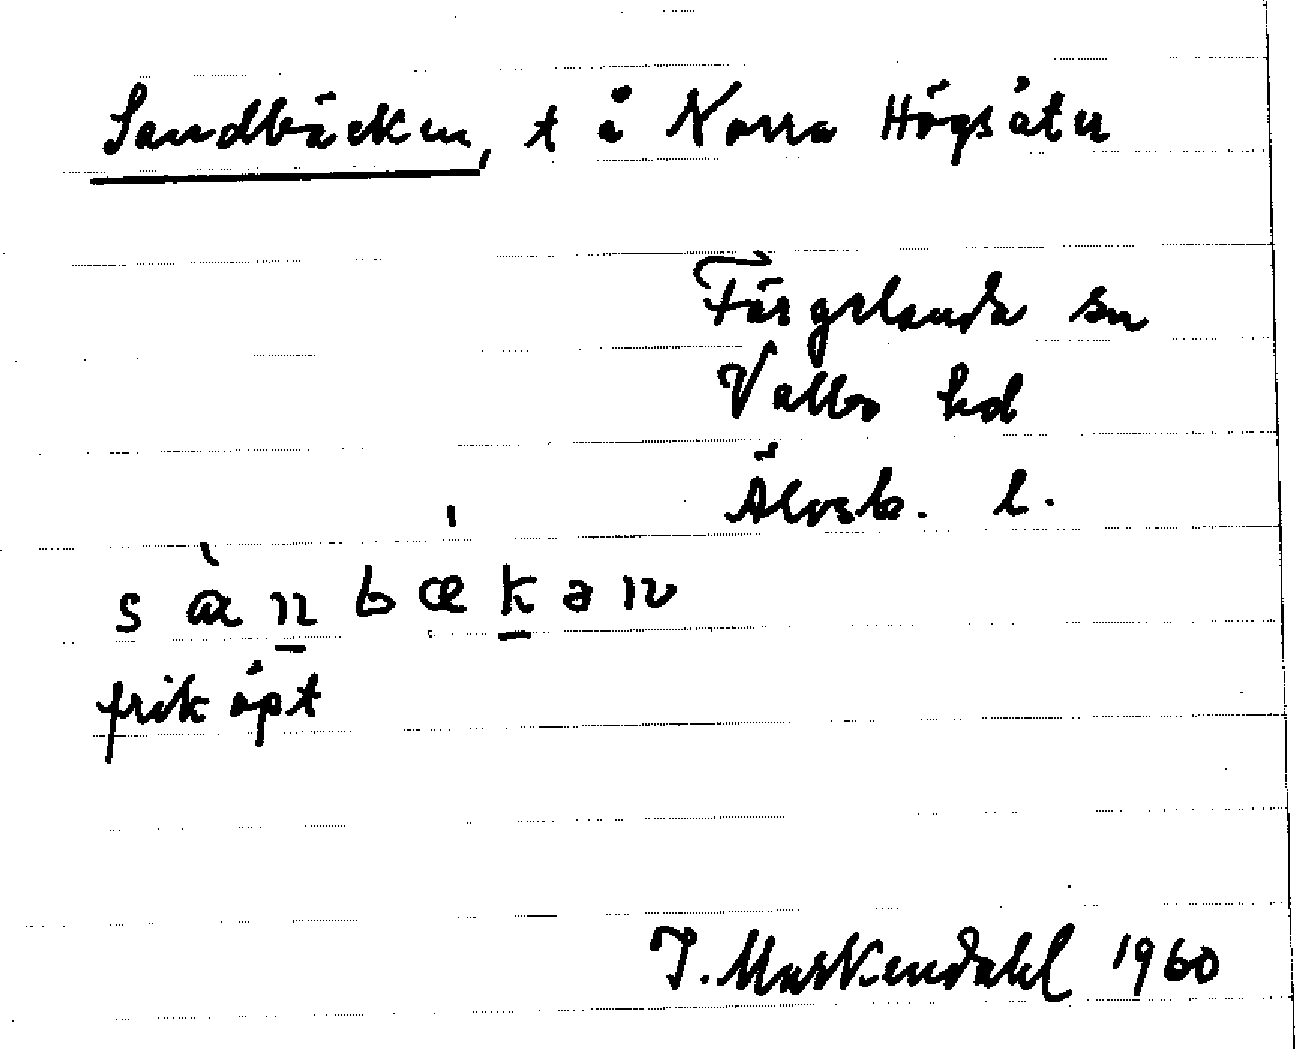 Sandbäcken, t å Norra Högsäter
Färgelanda sn
Valbo hd
Älvsb. l.
sàn̠bæ'k̠ən
friköpt
J. Markendahl 1960